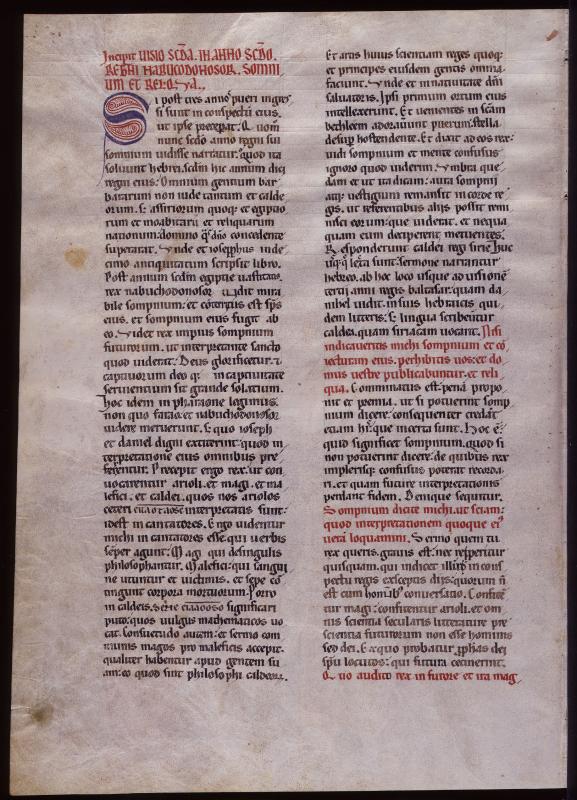 Incipit VISIO SCĐA. IN ANNO SCĐO.
REGNI NABUCODONOSOR. SOMNI
UM ET RELIQUA.
Si post tres annos pueri ingres
si sunt in conspectu eius.
ut ipse preceperat: Quomo
nunc scdo anno regni sui
somnium uidisse narratur: quod ita
soluunt hebrei. scdm hic annum dici
regni eius: Omnium gentium bar
bararum non iude tantum et calde
orum. S; assiriorum quoq; et egiptio
rum et moabitarum et reliquarum
nationum: domino qs dño concedente
superarat. Vnde et iosephus inde
cimo antiquitatum scripsit libro.
Post annum scdm egiptie uastitatis.
rex nabuchodonosor uidit mira
bile sompnium: et coterritus est sps
eius. et sompnium eius fugit ab
eo. Videt rex impius sompnium
futurorum. ut interpretante sancto
quod uiderat: Deus glorificetur. et
captiuorum deo q; in captiuitate
seruientium sit grande solatium.
hoc idem in pharaone legimus.
non quo farao et nabuchodonosor
uidere meruerint. S; quo ioseph
et daniel digni extiterint: quod in
terpretatione eius omnibus pre
ferentur. Precepit ergo rex: ut con
uocarentur arioli. et magi. et ma
lefici. et caldei. quos nos ariolos
ceteri interpretatis sunt:
idest in cantatores. Ergo uidentur
michi in cantatores esse. qui uerbis
seper agunt: Magi qui desingulis
philosophantur. Malefici: qui sangui
ne utuntur et uictimis. et sepe co
tingunt corpora mortuorum. Porro
in caldeis. significari
puto: quos uulgus mathematicos uo
cat. Consuetudo autem: et sermo com
munis magos pro maleficis accepit.
qualiter habentur apud gentem su
am: eo quod sint philosophi caldeorum.
Et artis huius scientiam reges quoq;
et principes eiusdem gentis omnia
faciunt. Vnde et in natiuitate dni
saluatoris. Ipsi primum ortum eius
intellexerunt. Et uenientes in scam
bethleem adorauunt puerum: stella
desup hostendente. Et dixit ad eos rex:
uidi sompnium et mente confusus
ignoro quod uiderim. Vmbra que
dam et ut ita dicam: aura sompnii
atq; uestigium remansit in corde re
gis. ut referentibus aliis possit remi
nisci eorum: que uiderat. et nequa
quam eum deciperent metuentes.
Responderunt caldei regi sirie. Huc
usq; q; lecta sunt: sermone narrantur
hebreo. ab hoc loco usque ad uisione
tertii anni regis baltasar: quam da
nihel uidit. in suis hebraicis qui
dem litteris: S; lingua scribentur
caldea. quam siriacam uocant. Nisi
indicaueritis michi sompnium et co
iecturam eius. peribitis uos: et do
mus uestre publicabuntur. et reli
qua. Comminatus est pena propo
nit et premia. ut si potuerint somp
nium dicere: consequenter credat
etiam his: que incerta sunt. Hoc e:
quid significet sompnium. quod si
non potuerint dicere: de quibus rex
implerisq; confusus poterat recorda
ri. et quam future interpretationis
perdant fidem. Denique sequitur.
Sompnium dicite michi. ut sciam:
quod interpretationem quoque ei9
uera loquamini. Sermo quem tu
rex queris. grauis est. nec repperitur
quisquam. qui indicet illum in cons
pectu regis exceptis diis: quorum n
est cum hominib; conuersatio. Confite
tur magi: confitentur arioli. et om
nis scientia secularis litterature pre
scientia futurorum non esse hominis
sed dei. Ex quo probatur. pphas dei
spu locutos: qui futura cecinerint.
Quo audito rex in furore et ira mag